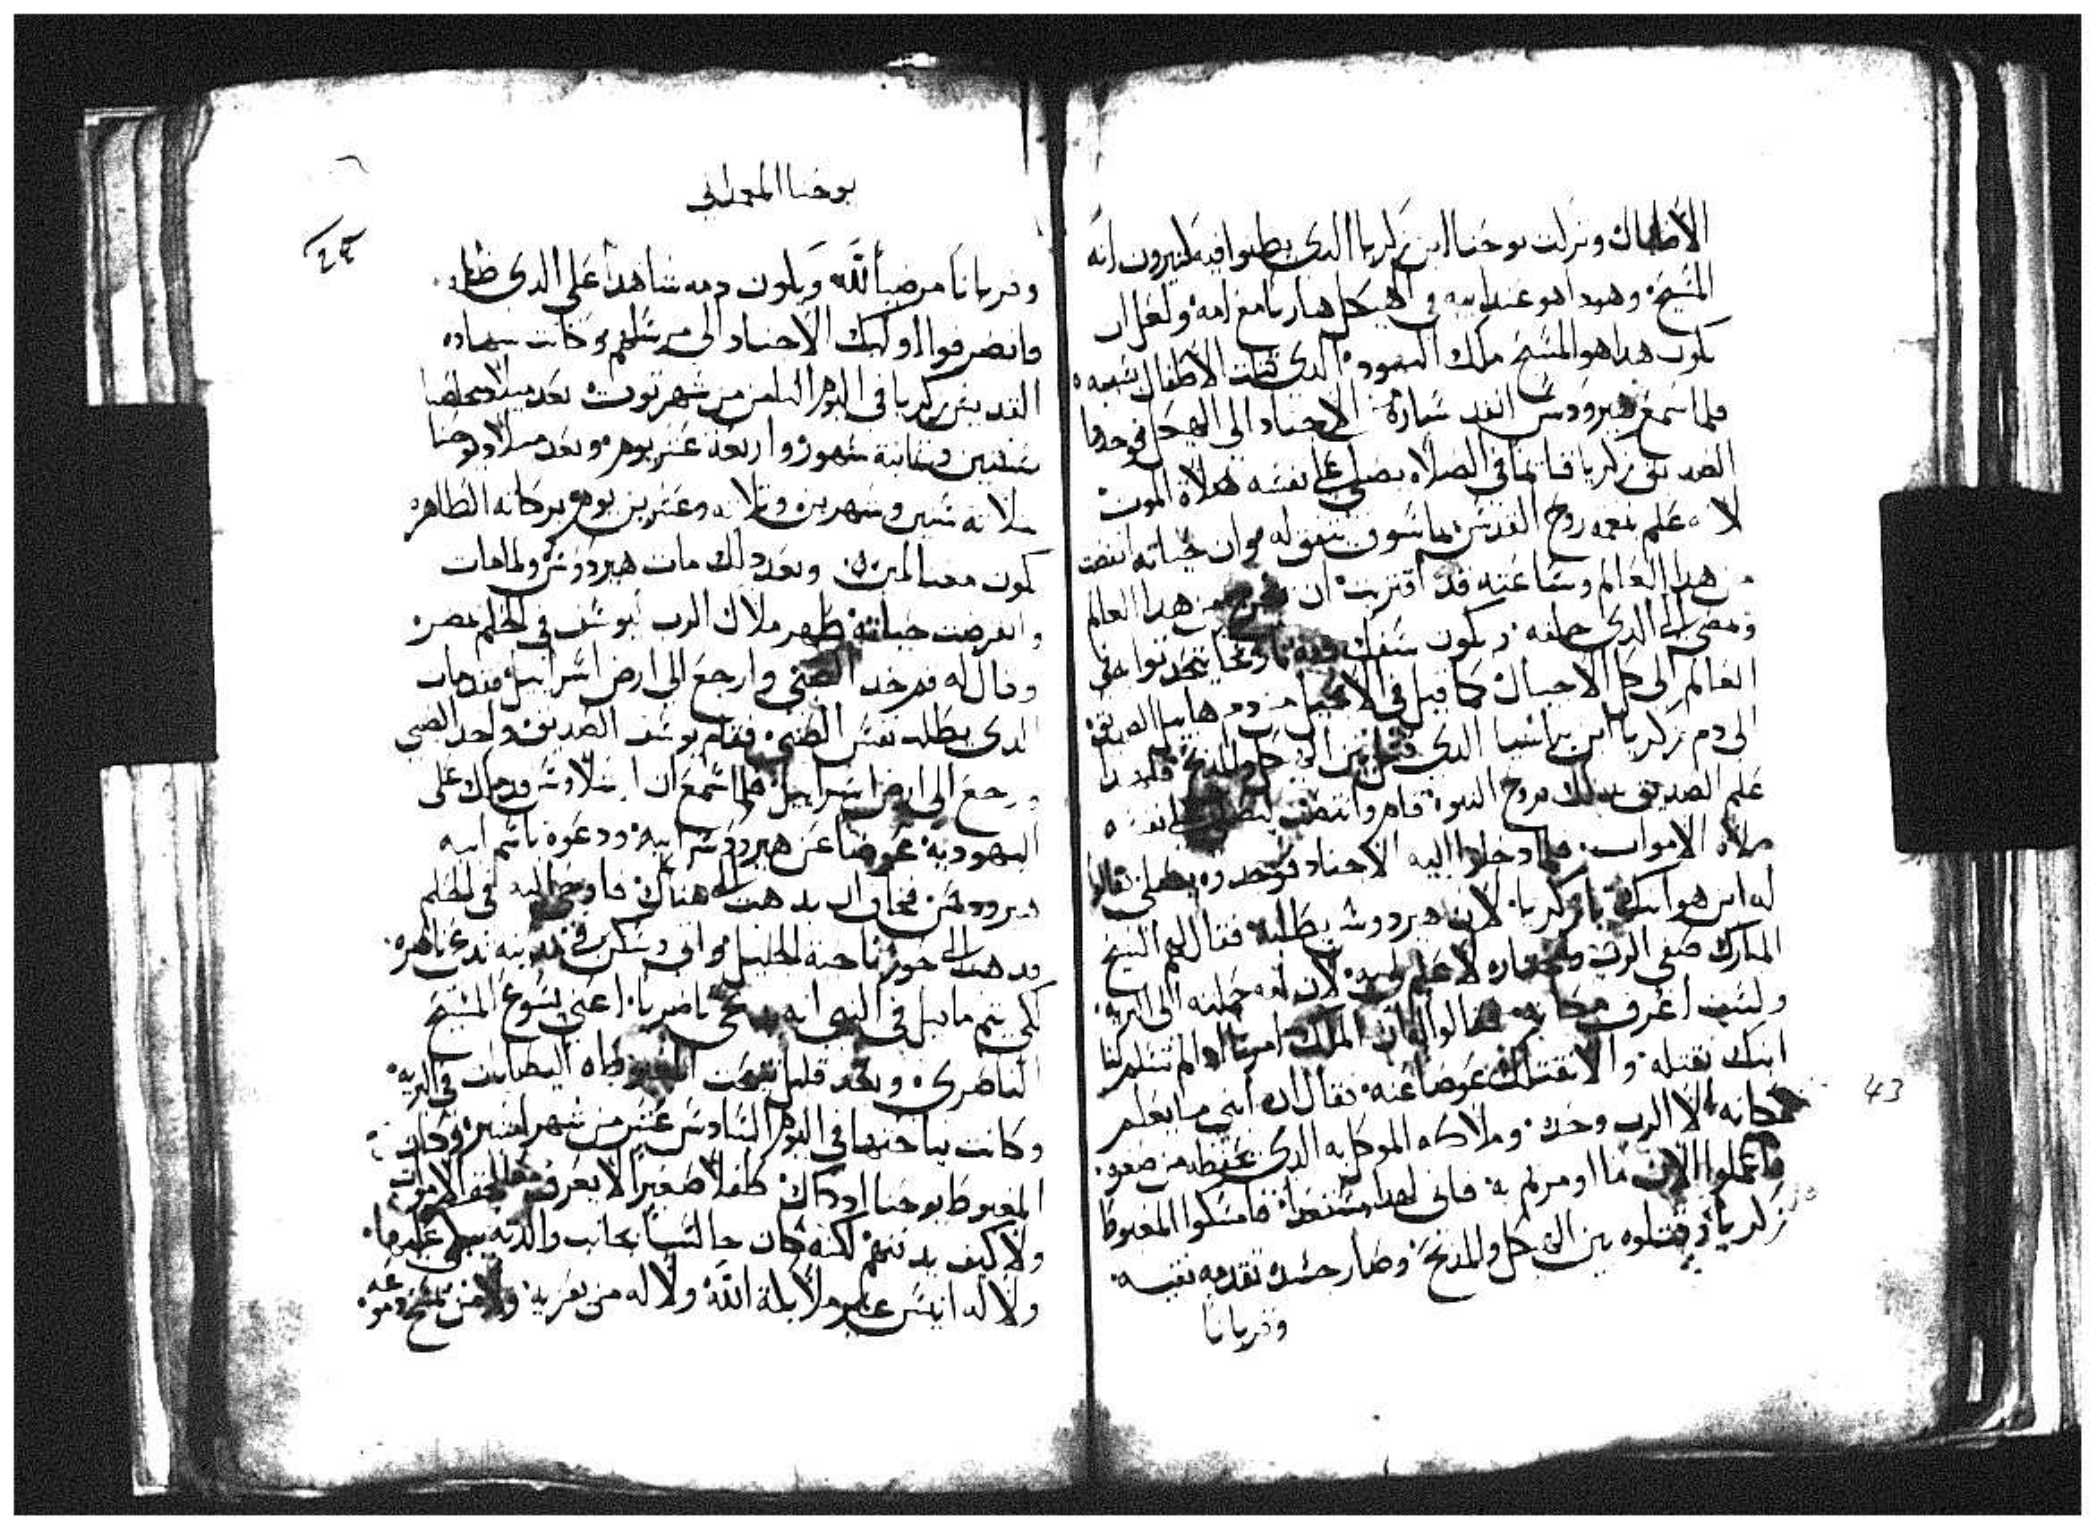 الأطفال وتركت يوحنا ابن زكريا الدي يظنوا فيه كثيرون انه
المسيح وهودا هو عند ابيه في الهيكل هاربا مع امه ولعل ان
يكون هدا هو المسيح ملك اليهود الدي قتلت الأطفال بسببه
فلما سمع هيرودس انفد الاجناد الى الهيكل فوجدوا
الصديق زكريا قائما في الصلاه يصلي على نفسه صلاة الموت
لانه علم بنعمه روح القدس بما سوف يتفق له وان حياته انقضت
من هدا العالم وساعته قد اقتربت ان يخرج من هدا العالم
ويمضي الى الدي خلقه ويكون سفك دمه تاريخا يتحدثوا به في
العالم الى كل الاجيال كما قيل في الانجيل من دم هابيل الصديق
الى دم زكريا ابن براشيا الدي قتل بين الهيكل والمدبح فلما
علم الصديق بدلك بروح النبوه قام وانتصب ليصلي على نفسه
صلاة الاموات فلما دخلوا اليه الاجناد فوجدوه يصلي فقالوا
له اين هو ابنك يا زكريا لان هيرودس يطلبه فقال لهم الشيخ
المبارك صفي الرب ومختاره لا علم لي به لان امه حملته الى البريه
ولست اعرف مكانه فقالوا له ان الملك امرنا ادا لم تسلم لنا
ابنك نقتله والا نقتلك عوضا عنه فقال ان ابني ما يعلم
مكانه الا الرب وحده وملاكه الموكل به الدي يحفظه من صغره
فاعملوا الان ما اومرتم به فاني لهدا مستعدا فامسكوا المغبوط
زكريا وقتلوه بين الهيكل والمدبح وصار حينئد تقدمه نقيه
وقربانا
43
يوحنا المعمداني
٤٣
وقربانا مرضيا لله ويكون دمه شاهدا على الدي ظلمه
فانصرفوا اوليك الاجناد الى مرسلهم وكانت شهاده
القديس زكريا في اليوم التامن من شهر توت بعد ميلاد مخلصنا
سنتين وثمانية شهور واربعة عشر يوم وبعد ميلاد يوحنا
بتلاته سنين وشهرين وتلاته وعشرين يوم بركاته الطاهره
تكون معنا امين وبعد دلك مات هيرودس ولما مات
وانقرضت حياته ظهر ملاك الرب ليوسف في الحلم بمصر
وقال له قم خد الصبي وارجع الى ارض اسرائيل فقد مات
الدي يطلب نفس الصبي فقام يوسف الصديق واخد الصبي
ورجع الى ارض اسرائيل فلما سمع ان ارشلاوش قد ملك على
اليهوديه عوضا عن هيرودس ابيه ودعوه باسم ابيه
هيرودس فخاف ان يدهب الى هناك فاوحي اليه في الحلم
فدهب الى حوز ناحيه الجليل واتى وسكن في مدينه تدعى ناصره
لكي يتم ما قيل في النبي انه يدعى ناصريا اعني يسوع المسيح
الناصري وبعد قليل تنيحت المغبوطه اليصابات في البريه
وكانت نياحتها في اليوم السادس عشر من شهر امشير وكان
المغبوط يوحنا اد داك طفلا صغيرا لا يعرف
ولا كيف يدفنهم لكنه كان جالسا بجانب والدته يبكي عليها
ولا له انيس غير ملايكة الله ولا له من يعزيه ولا من يمسح دموعه